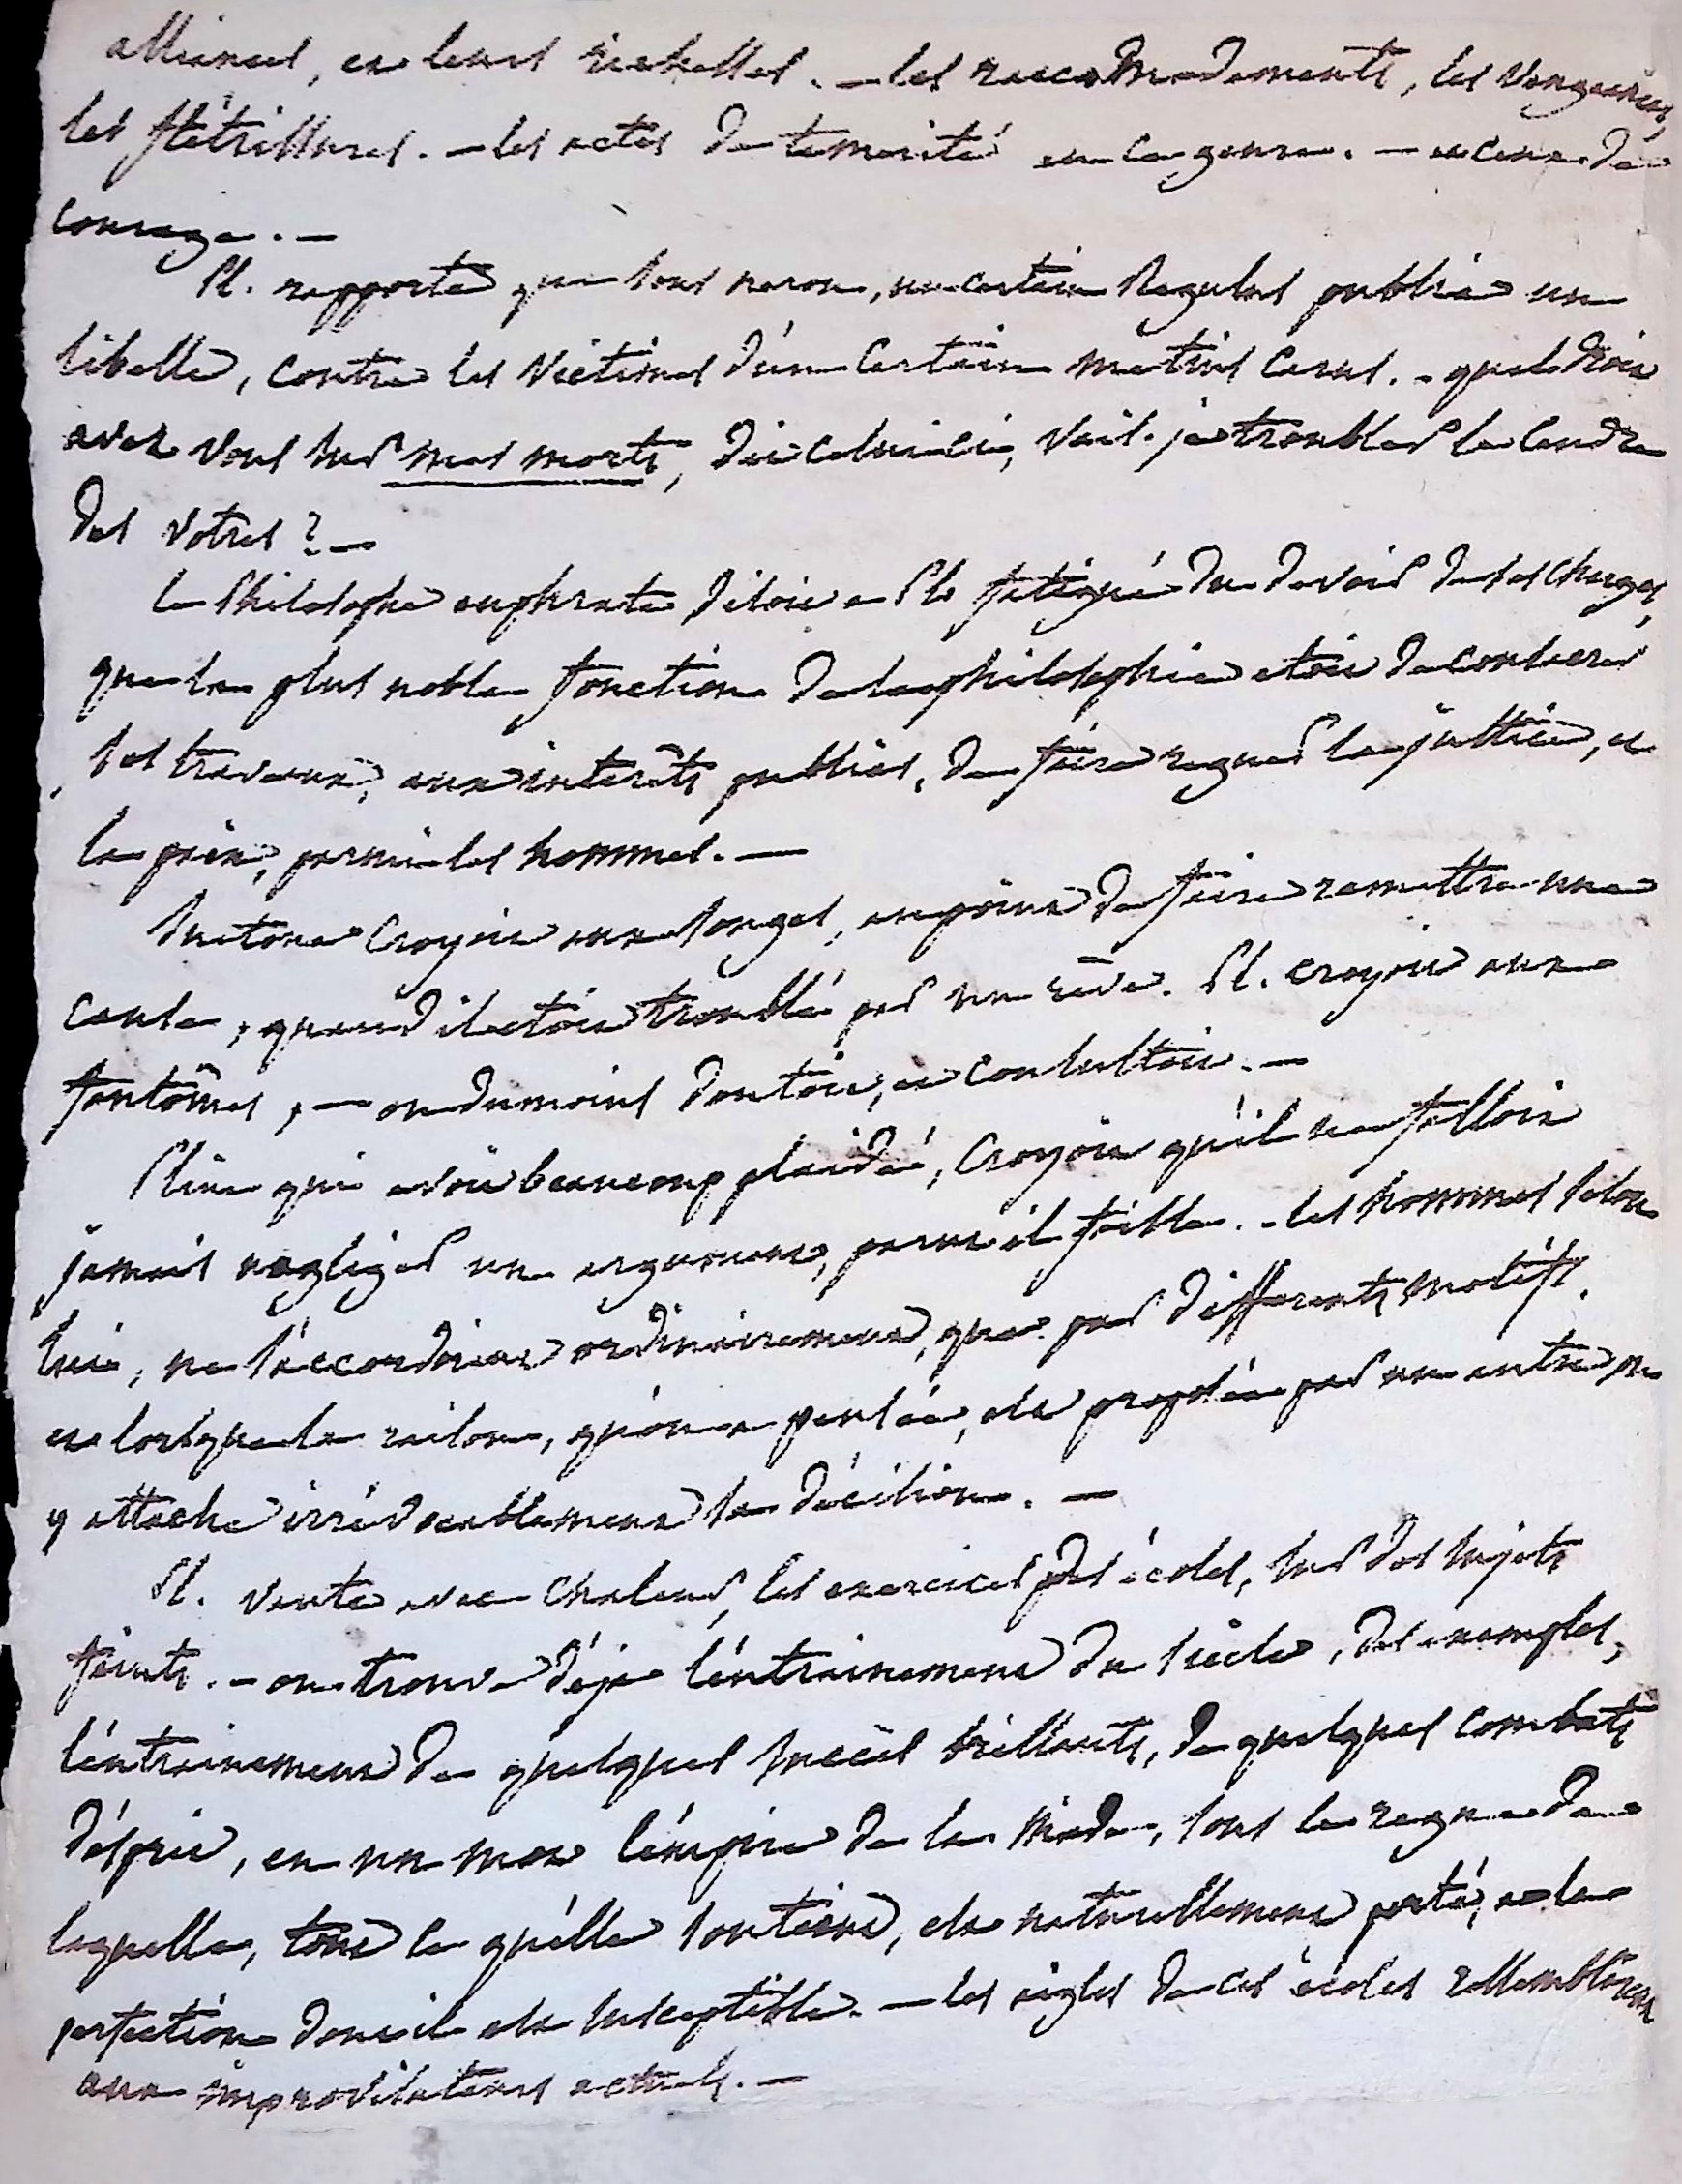 alliances, et leurs richesses. — les raccommodements, les vengeances,
les flétrissures. — les actes de temerité en ce genre. — et ceux de
courage. —
Pl. rapporte que sous neron, un certain Regulus publia un
libelle, contre les victimes d'un certain metius Carus. - quel droit
avez vous sur mes morts, dit celui ci, vais-je troubler la cendre
des votres ? —
le Philosophe euphrate disoit a Pl. fatigué du devoir de ses charges,
que la plus noble fonction de la philosophie etoit de consacrer
ses travaux, aux interêts publics, de faire regner la justice, et
la paix, parmi les hommes. —
Suetone croyoit aux songes, au point de faire remettre une
cause, quand il etoit troublé par un rêve. Pl. croyoit aux
fantômes, — ou du moins doutoit, et consultoit. —
Pline qui avoit beaucoup plaidé, croyoit qu'il ne falloit
jamais negliger un argument, parut-il foible. - les hommes selon
lui, ne s'accordoient ordinairement, que par differents motifs,
et lorsque la raison, qu'on a pensée, est proposée par un autre, on
y attache irrévocablement sa décision. —
Pl. vante avec chaleur, les exercices des écoles, sur des sujets
feints. - on trouve déja l'entrainement du siècle, des exemples,
l'entrainement de quelques succès brillants, de quelques combats
d'esprit, en un mot l'empire de la mode, sous le regne de
laquelle, tout ce qu'elle soutient, est naturellement porté, a la
perfection dont il est susceptible. — les aigles de ces écoles ressembloient
aux improvisateurs actuels. —